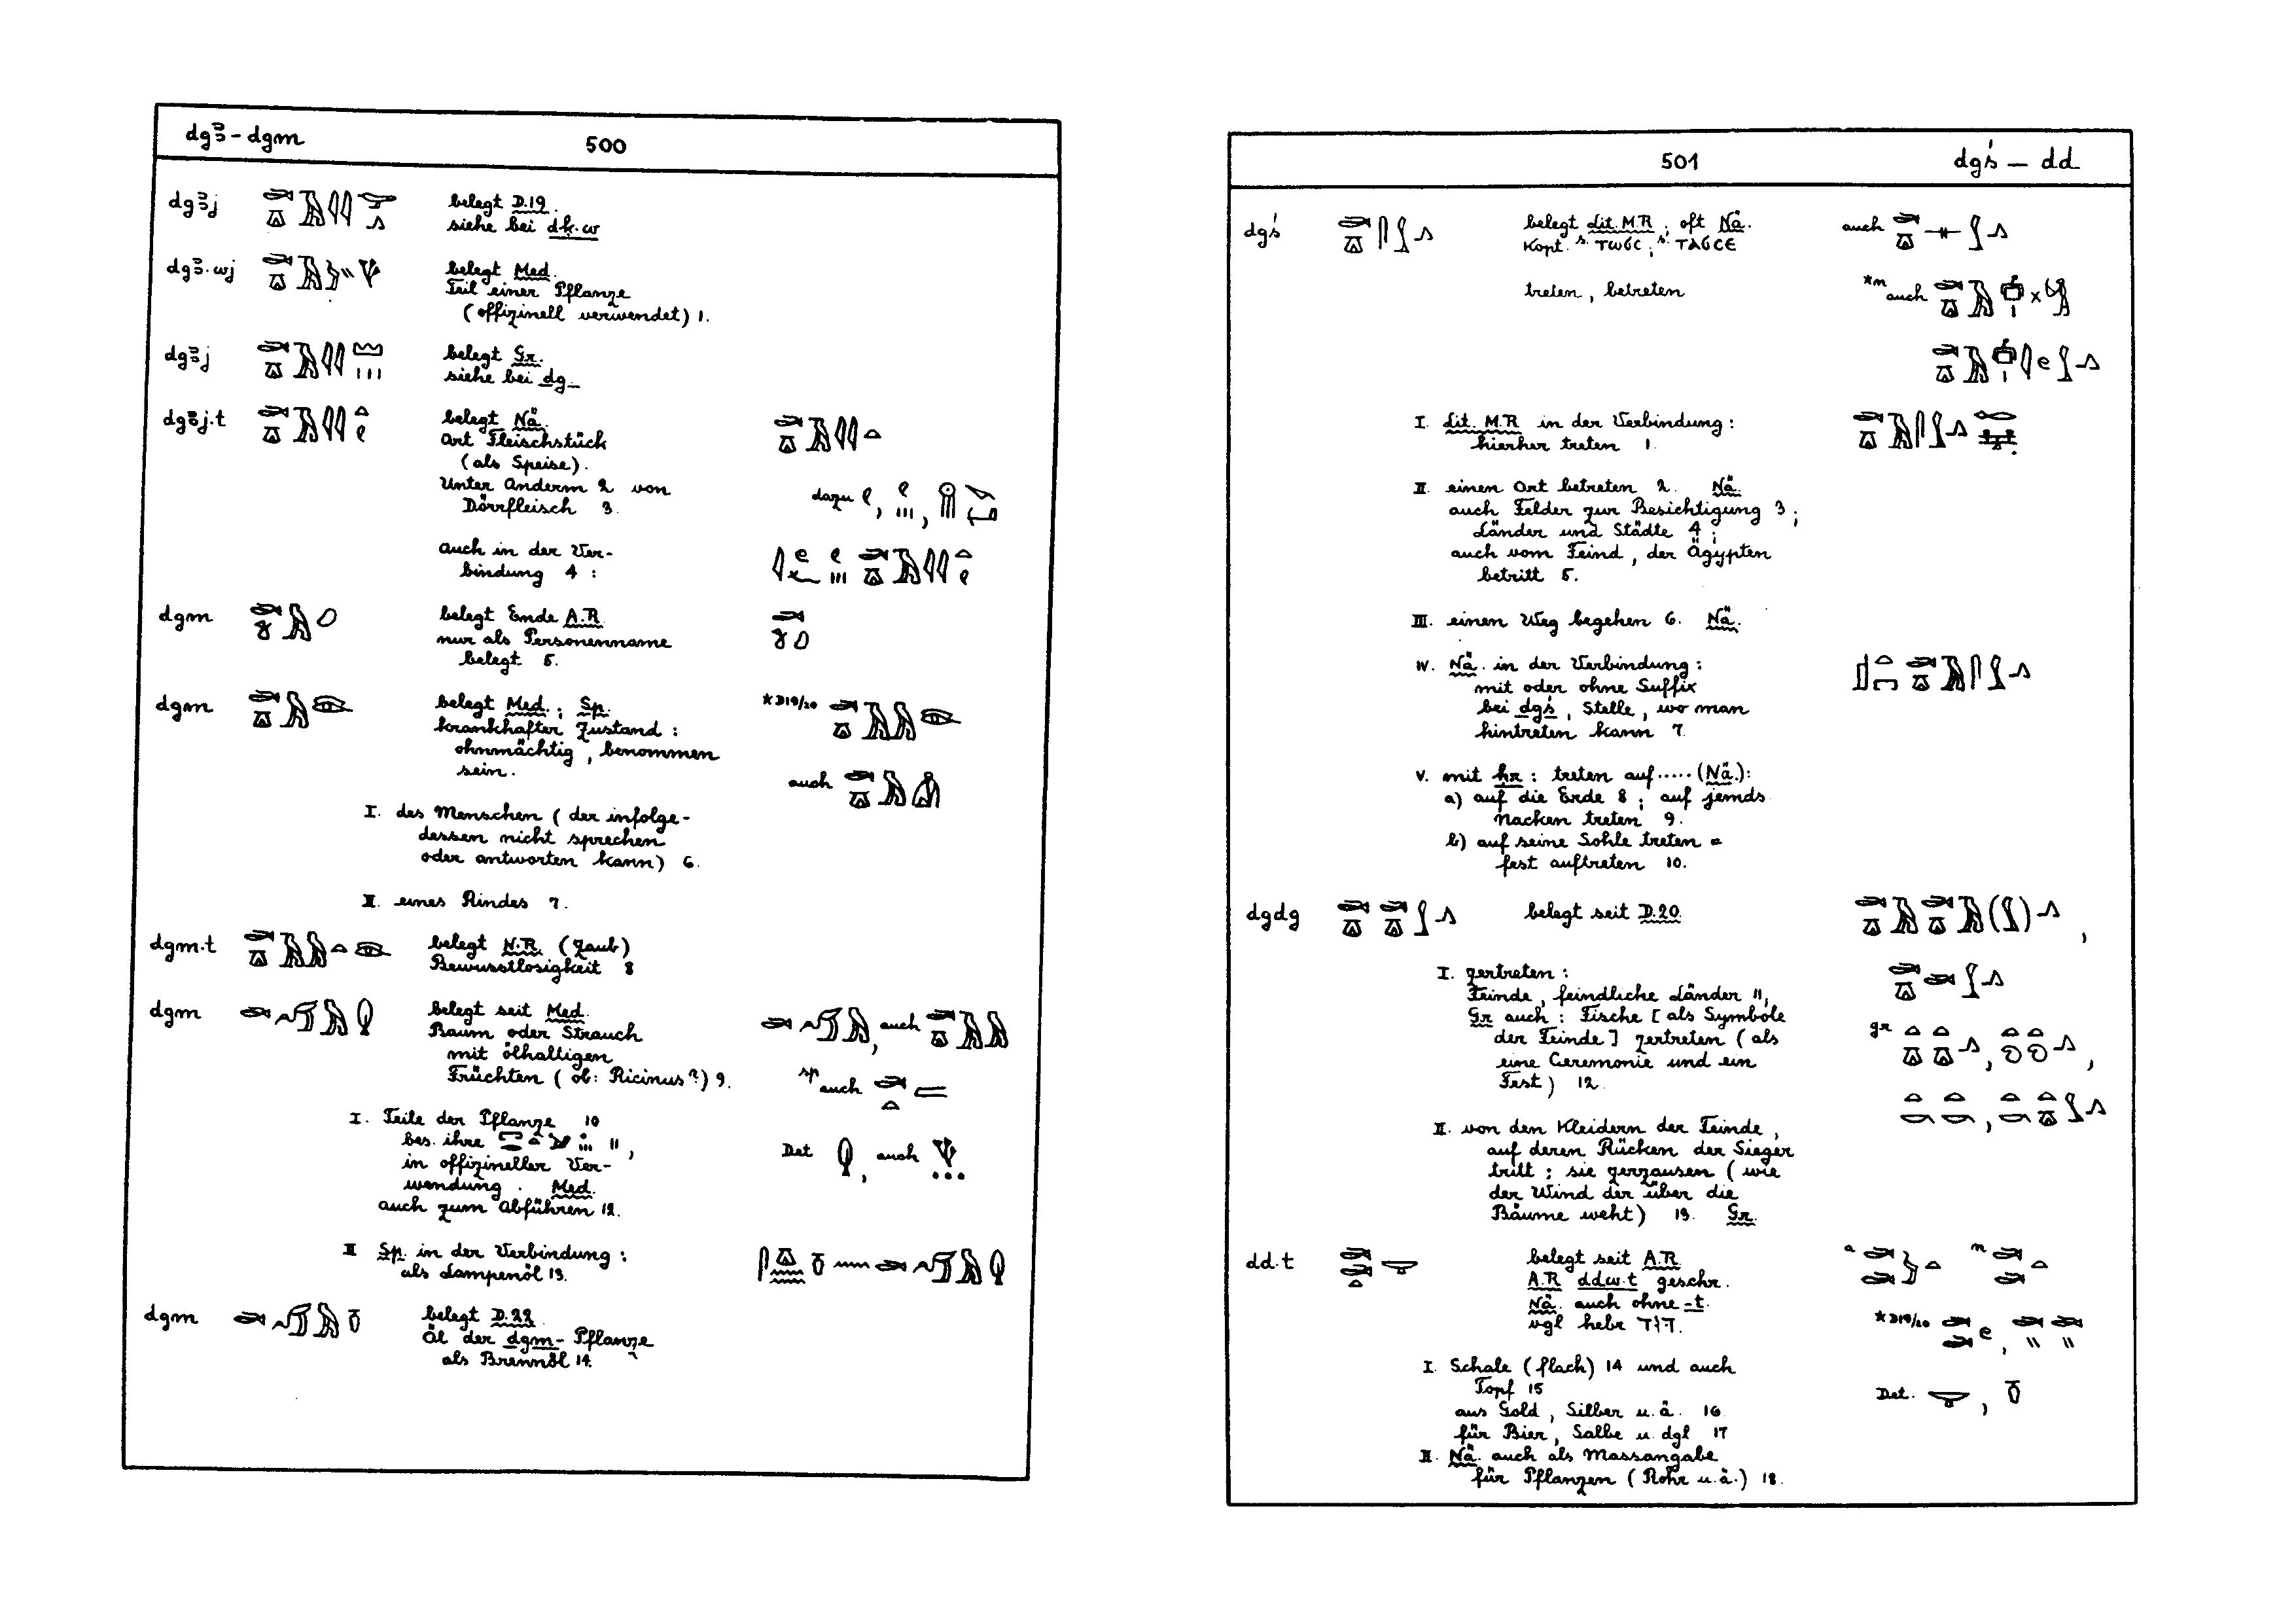 dgꜣ - dgm
500
dgꜣj
belegt D.19.
siehe bei dk.w
dgꜣ.wj
belegt Med.
Teil einer Pflanze
(offizinell verwendet) 1.
dgꜣj
belegt Gr.
siehe bei dg
dgꜣj.t
belegt Nä.
Art Fleischstück
(als Speise).
Unter Anderm 2 von
Dörrfleisch 3.
dazu
auch in der Ver-
bindung 4 :
dgm
belegt Ende A.R.
nur als Personenname
belegt 5.
dgm
belegt Med. ; Sp.
krankhafter Zustand :
ohnmächtig , benommen
sein.
*D19/20
auch
I. des Menschen ( der infolge-
dessen nicht sprechen
oder antworten kann) 6.
II. eines Rindes 7.
dgm.t
belegt N.R. (Zaub)
Bewusstlosigkeit 8
dgm
belegt seit Med.
Baum oder Strauch
mit ölhaltigen
Früchten ( ob: Ricinus?) 9.
, auch
sp auch
I. Teile der Pflanze 10
bes. ihre 11 ,
in offizineller Ver-
wendung . Med.
auch zum Abführen 12.
Det , auch
II Sp. in der Verbindung :
als Lampenöl 13.
dgm
belegt D.22.
Öl der dgm- Pflanze
als Brennöl 14.
501
dgś — dd
dgś
belegt Lit. M.R ; oft Nä.
Kopt. s. ⲧⲱϭⲥ ; s. ⲧⲁϭⲥⲉ
auch
treten , betreten
*n auch
I. Lit. M.R in der Verbindung :
hierher treten 1.
II einen Ort betreten 2. Nä.
auch Felder zur Besichtigung 3 ;
Länder und Städte 4 ;
auch vom Feind , der Ägypten
betritt 5.
III. einen Weg begehen 6. Nä.
IV. Nä. in der Verbindung :
mit oder ohne Suffix
bei dgś , Stelle , wo man
hintreten kann 7.
V. mit ḥr : treten auf ..... (Nä.):
a) auf die Erde 8 ; auf jemds
Nacken treten 9.
b) auf seine Sohle treten =
fest auftreten 10.
dgdg
belegt seit D.20.
I. zertreten :
Feinde , feindliche Länder 11,
Gr auch : Fische [ als Symbole
der Feinde ] zertreten ( als
eine Ceremonie und ein
Fest ) 12.
gr
II. von den Kleidern der Feinde ,
auf deren Rücken der Sieger
tritt ; sie zerzausen ( wie
der Wind der über die
Bäume weht ) 13. Gr.
dd.t
belegt seit A.R.
A.R ddw.t geschr.
Nä. auch ohne -t.
vgl hebr דוד.
a
n
*D19/20
I. Schale ( flach ) 14 und auch
Topf 15
aus Gold , Silber u.ä. 16.
für Bier , Salbe u. dgl 17
Det.
II. Nä. auch als Massangabe
für Pflanzen ( Rohr u.ä.) 18.